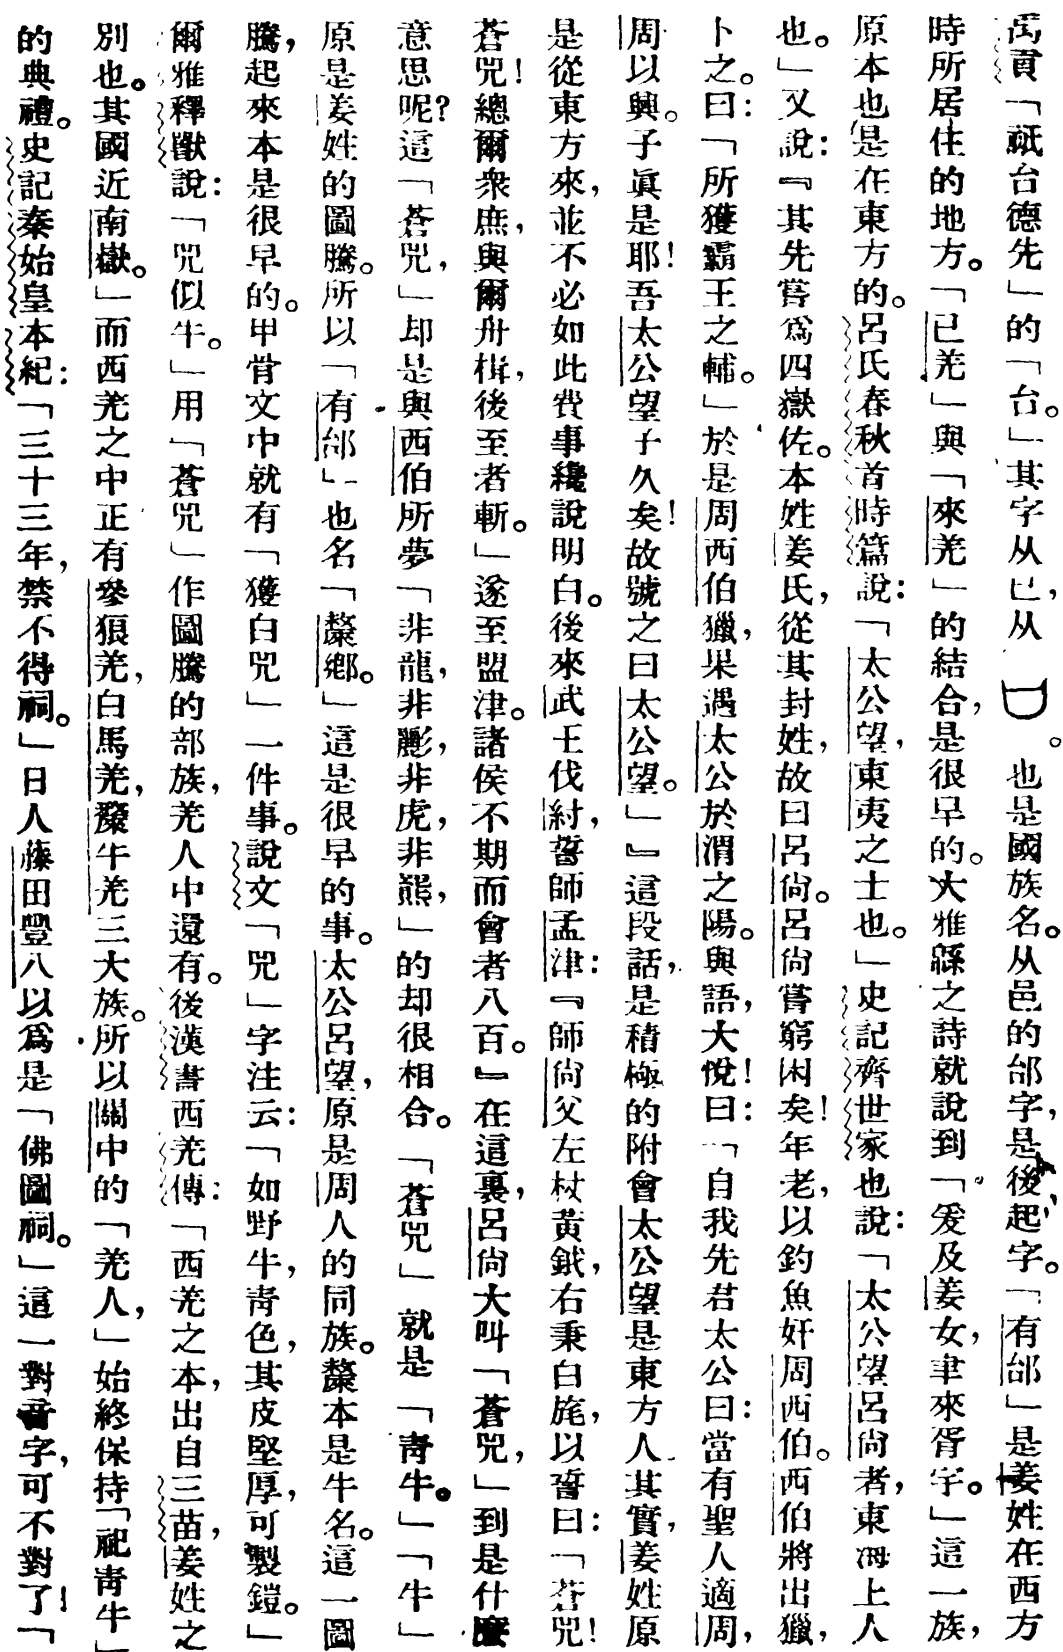 禹貢「祇台德先」的「台。」其字从㠯,从𠙵。也是國族名。从邑的邰字,是後起字。「有邰」是姜姓在西方
時所居住的地方。「已羌」與「來羌」的結合,是很早的。大雅緜之詩就說到「爰及姜女,聿來胥宇。」這一族,
原本也是在東方的。呂氏春秋首時篇說:「太公望,東夷之士也。」史記齊世家也說:「太公望呂尙者,東海上人
也。」又說:『其先嘗爲四嶽佐。本姓姜氏,從其封姓,故曰呂尙。呂尙嘗窮困矣!年老,以釣魚奸周西伯。西伯將出獵,
卜之。曰:「所獲霸王之輔。」於是周西伯獵,果遇太公於渭之陽。與語,大悅!曰:「自我先君太公曰:當有聖人適周,
周以興。子眞是耶!吾太公望子久矣!故號之曰太公望。」』這段話,是積極的附會太公望是東方人其實,姜姓原
是從東方來,並不必如此費事纔說明白。後來武王伐紂,誓師孟津:『師尙父左杖黃鉞,右秉白旄,以誓曰:「蒼兕!
蒼兕!總爾衆庶,與爾舟楫,後至者斬。」遂至盟津。諸侯不期而會者八百。』在這裏,呂尙大叫「蒼兕,」到是什麼
意思呢?這「蒼兕,」却是與西伯所夢「非龍,非彲,非虎,非熊,」的却很相合。「蒼兕」就是「靑牛。」「牛」
原是姜姓的圖騰。所以「有邰」也名「斄鄉。」這是很早的事。太公呂望,原是周人的同族。斄本是牛名。這一圖
騰,起來本是很早的。甲骨文中就有「獲白兕」一件事。說文「兕」字注云:「如野牛,靑色,其皮堅厚,可製鎧。」
爾雅釋獸說:「兕似牛。」用「蒼兕」作圖騰的部族,羌人中還有。後漢書西羌傳:「西羌之本,出自三苗,姜姓之
別也。其國近南嶽。」而西羌之中正有參狼羌,白馬羌,氂牛羌三大族。所以關中的「羌人,」始終保持「祀靑牛」
的典禮。史記秦始皇本紀:「三十三年,禁不得祠。」日人藤田豐八以爲是「佛圖祠。」這一對音字,可不對了!「